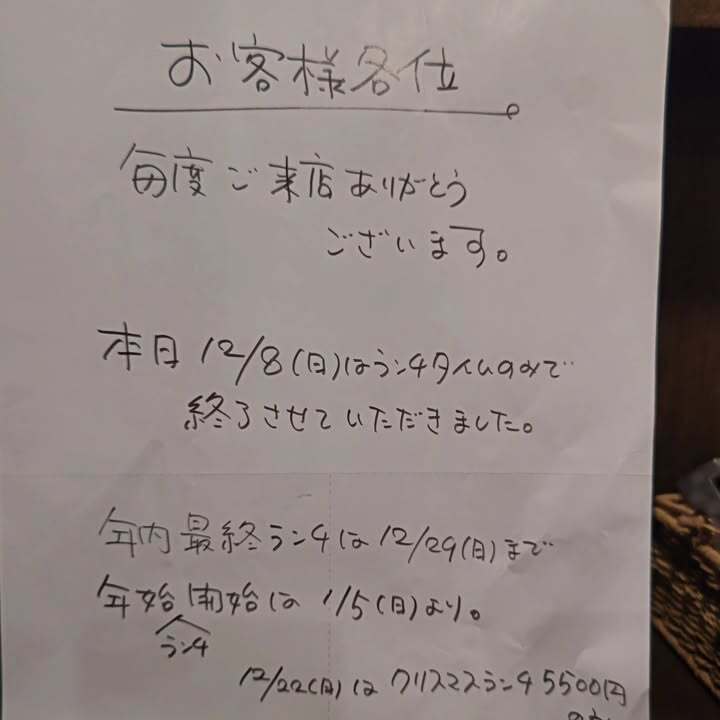 お客様各位
毎度ご来店ありがとう
ございます。
本日12/8(日)はランチタイムのみで
終了させていただきました。
年内最終ランチは12/29(日)まで
年始開始は1/5(日)より。
ランチ
12/22(日)はクリスマスランチ5500円